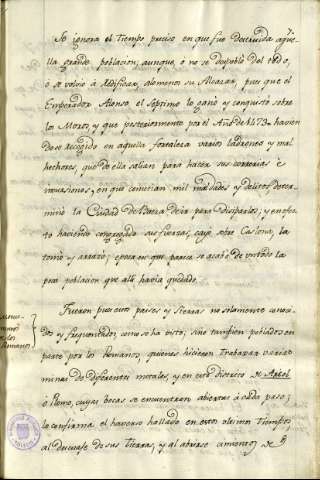 Se ignora el tiempo preciso en que fue destruida aque
lla grande poblacion, aunque, ó no se despobló del todo,
ó se volvio á redificar, alomenos su Alcazar, pues que el
Emperador Alonso el Septimo lo ganó y conquistó sobre
los Moros, y que posteriormente por el Año de 1473 havien
dose accogido en aquella fortaleza varios ladrones y mal
hechores, que de ella salian para hacer sus correrias é
invasiones, en que cometian mil maldades y delitos deter
minó la Ciudad de Baeza de ir para disiparlos; y en efec
to haviendo congregado sus fuerzas, cayó sobre Caslona, la
tomó y arrazó; epoca en que parece se acabó de un todo la
poca poblacion que alli havia quedado.
Fueron pues estos paises y Sierras no solamente conoci
dos y frequentados, como se ha visto; sino tambien poblados en
parte por los Romanos, quienes hicieron trabajar varias
minas de diferentes metales, y en este distrito de
ó Plomo, cuyas bocas se encuentran abiertas á cada paso;
lo confirma el haverse hallado en estos ultimos tiempos
al desquaje de sus tierras, y al abrirse cimientos de
Romanos